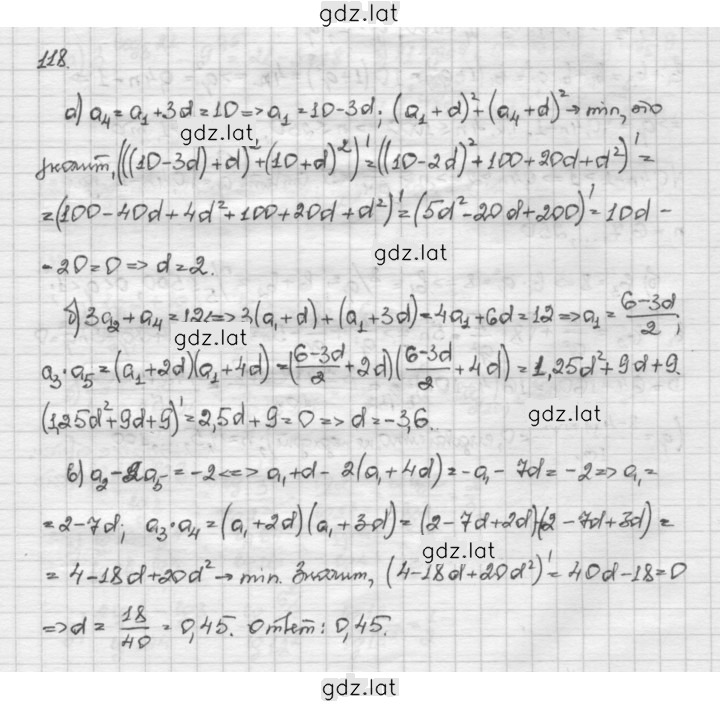 gdz.lat
118.
а) a₄ = a₁ + 3d = 10 => a₁ = 10 - 3d; (a₁ + d)² + (a₄ + d)² → min, это
gdz.lat
значит, (((10 - 3d) + d)² + (10 + d)²)' = ((10 - 2d)² + 100 + 20d + d²)' =
= (100 - 40d + 4d² + 100 + 20d + d²)' = (5d² - 20d + 200)' = 10d -
gdz.lat
- 20 = 0 => d = 2.
б) 3a₂ + a₄ = 12 <=> 3(a₁ + d) + (a₁ + 3d) = 4a₁ + 6d = 12 => a₁ = (6 - 3d)/2;
gdz.lat
a₃ · a₅ = (a₁ + 2d)(a₁ + 4d) = ((6 - 3d)/2 + 2d)((6 - 3d)/2 + 4d) = 1,25d² + 9d + 9.
(1,25d² + 9d + 9)' = 2,5d + 9 = 0 => d = -3,6.
gdz.lat
в) a₂ - 2a₅ = -2 <=> a₁ + d - 2(a₁ + 4d) = -a₁ - 7d = -2 => a₁ =
= 2 - 7d; a₃ · a₄ = (a₁ + 2d)(a₁ + 3d) = (2 - 7d + 2d)(2 - 7d + 3d) =
gdz.lat
= 4 - 18d + 20d² → min. Значит, (4 - 18d + 20d²)' = 40d - 18 = 0
=> d = 18/40 = 0,45. Ответ: 0,45.
gdz.lat